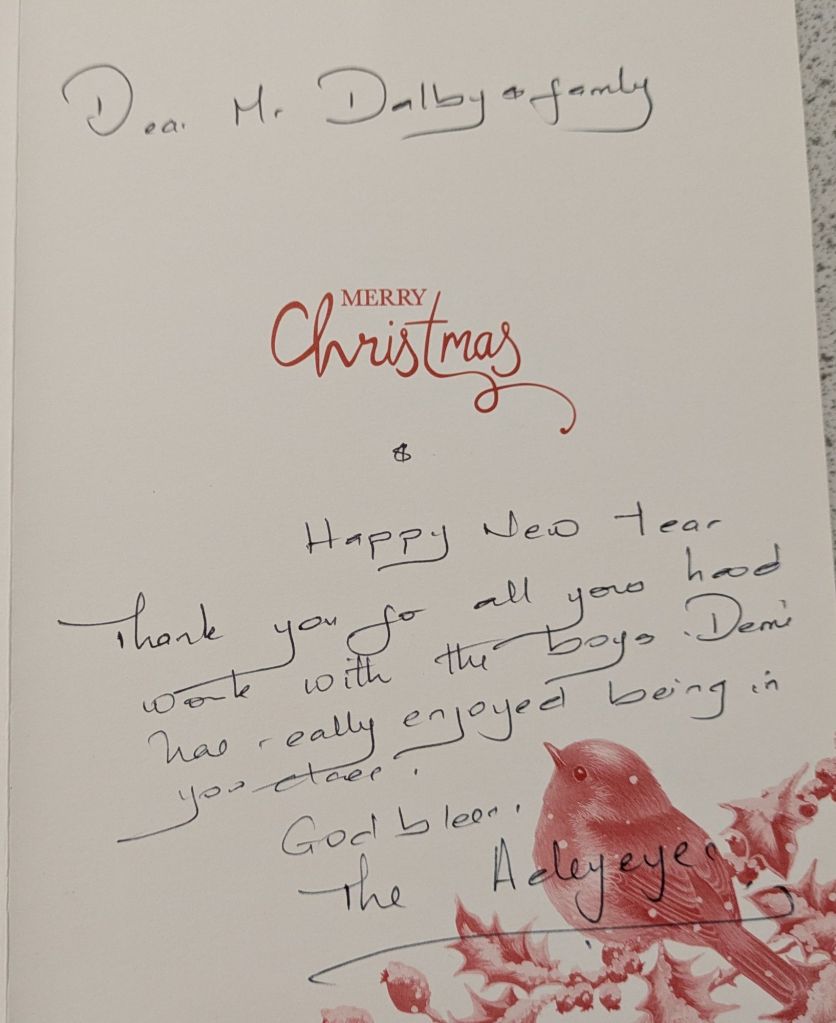 Dear Mr Dalby & family
MERRY
Christmas
&
Happy New Year
Thank you for all your hard
work with the boys. Demi
has really enjoyed being in
your class.
God bless.
The Adeyeyes